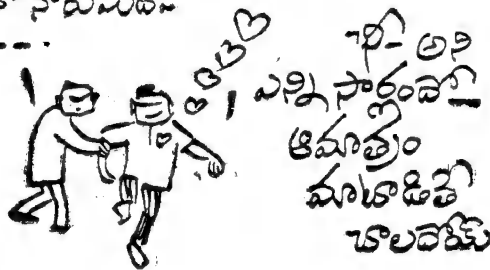 -ఛీ- అని
ఎన్ని సార్లందో
ఆమాత్రం
మాటాడితే
చాలదోయ్